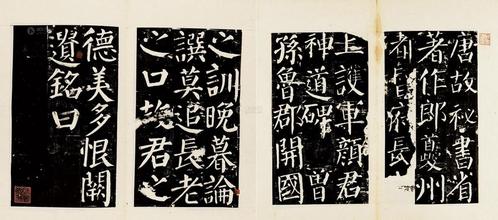 唐故秘書省
著作郎夔州
都督府長
上護軍顏君
神道碑 曾
孫魯郡開國
之訓晚暮論
譔莫追長老
之口故君之
德美多恨闕
遺銘曰